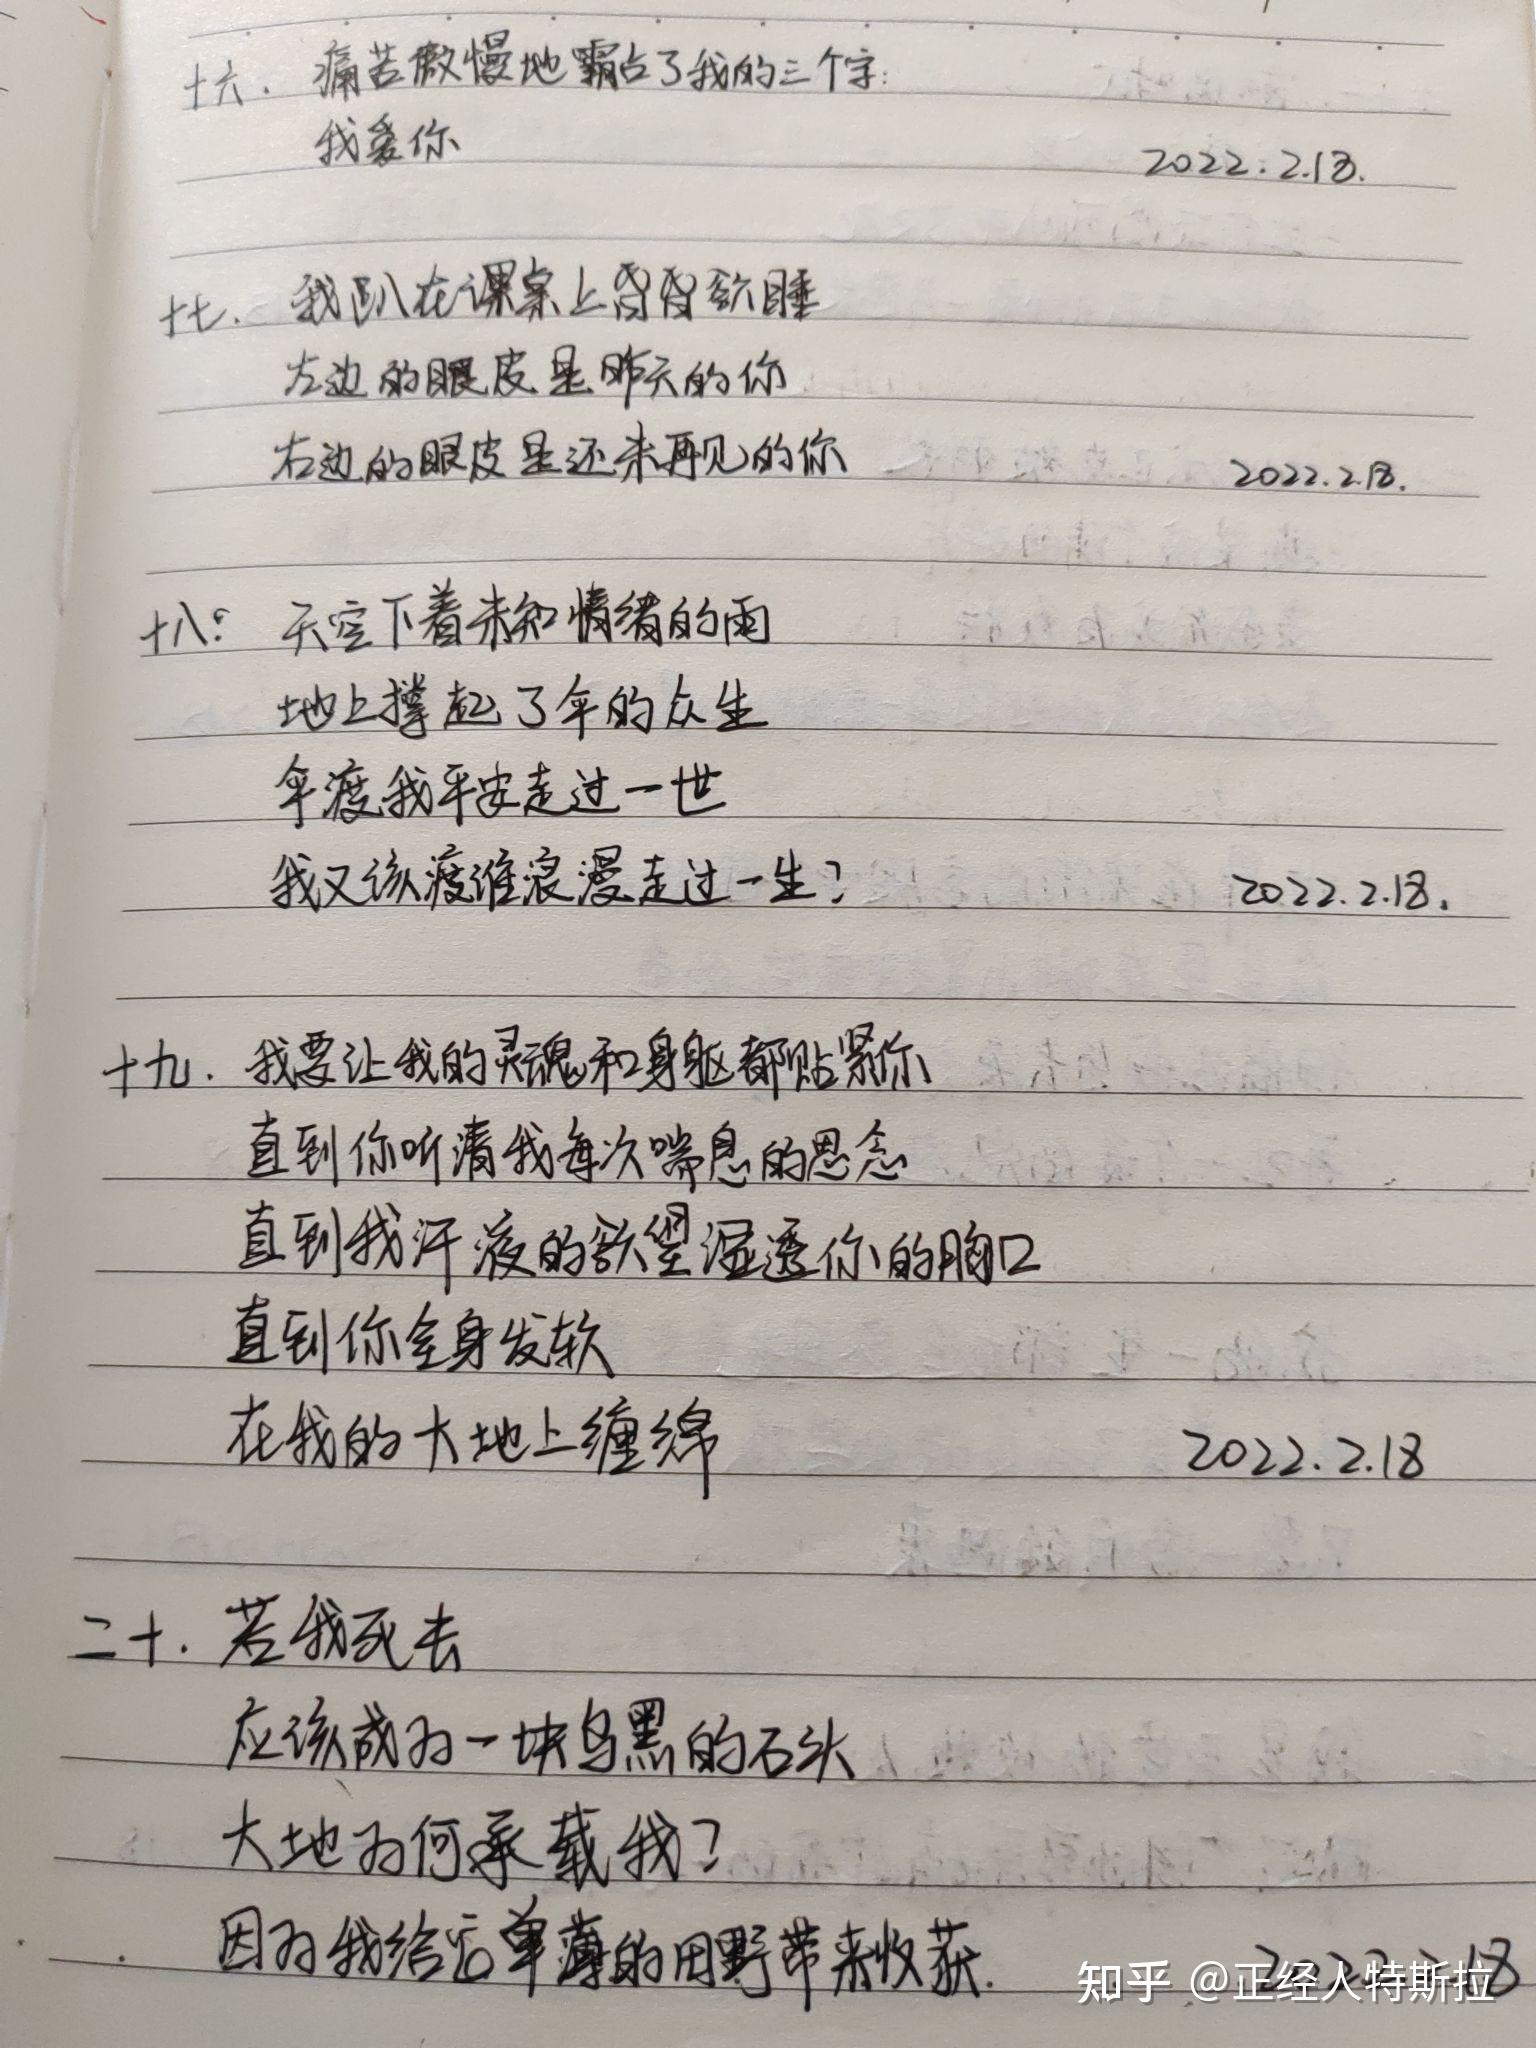 十六. 痛苦傲慢地霸占了我的三个字:
我爱你
2022.2.18.
十七. 我趴在课桌上昏昏欲睡
左边的眼皮是昨天的你
右边的眼皮是还未再见的你
2022.2.18.
十八. 天空下着未知情绪的雨
地上撑起了伞的众生
伞渡我平安走过一世
我又该渡谁浪漫走过一生?
2022.2.18.
十九. 我要让我的灵魂和身躯都贴紧你
直到你听清我每次喘息的思念
直到我汗液的欲望湿透你的胸口
直到你全身发软
在我的大地上缠绵
2022.2.18
二十. 若我死去
应该成为一块乌黑的石头
大地为何承载我?
因为我给它单薄的田野带来收获.
2022.2.18
知乎 @正经人特斯拉